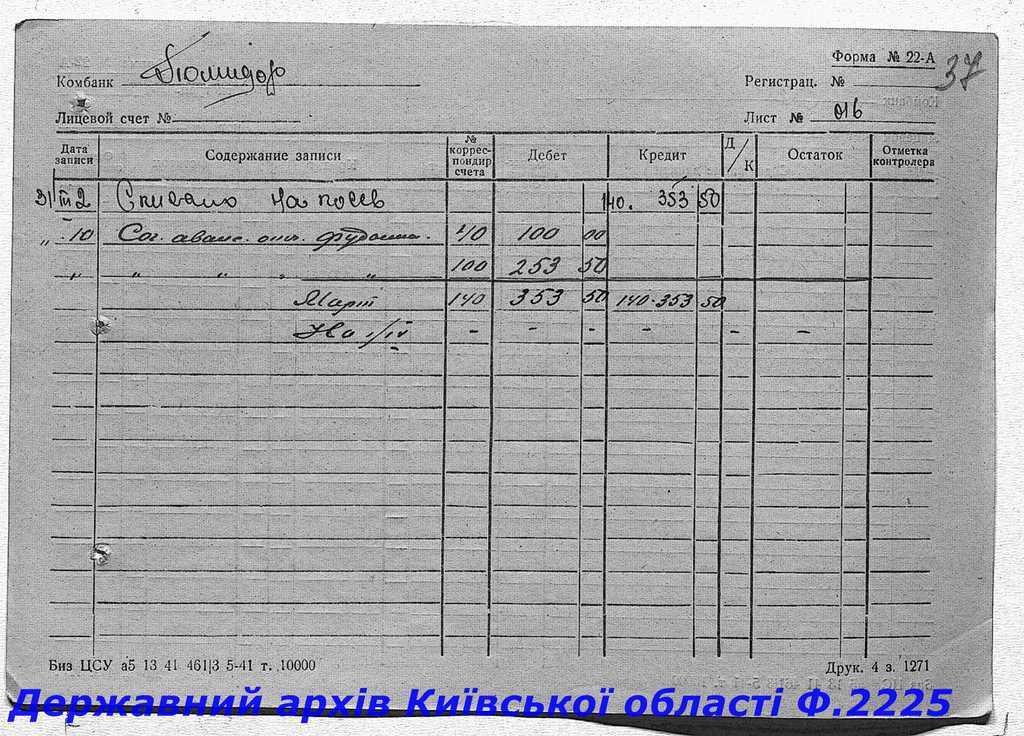 Форма № 22-А
37
Комбанк Помидор
Регистрац. №
Лицевой счет №
Лист № 016
Дата записи Содержание записи № коррес-пондир. счета Дебет Кредит Д/К Остаток Отметка контролера
31/III 2 Списано на посев 140. 353 50
„ 10 Сог. аванс. отч. 40 100 00
„ „ „ „ „ 100 253 50
Март 140 353 50 140.353 50
На 1/IV - - - - - -
Биз ЦСУ а5 13 41 461|3 5-41 т. 10000
Друк. 4 з. 1271
Державний архів Київської області Ф.2225